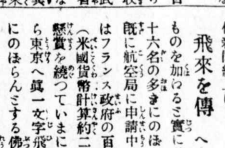 飛來を傳へ
ものを加はると實に
十六名の多きにのぼ
既に航空局に申請中
はフランス政府の百
（米國貨幣計算約二
懸賞を繞つていまに
ら東京へ眞一文字飛
にのぼらんとする佛